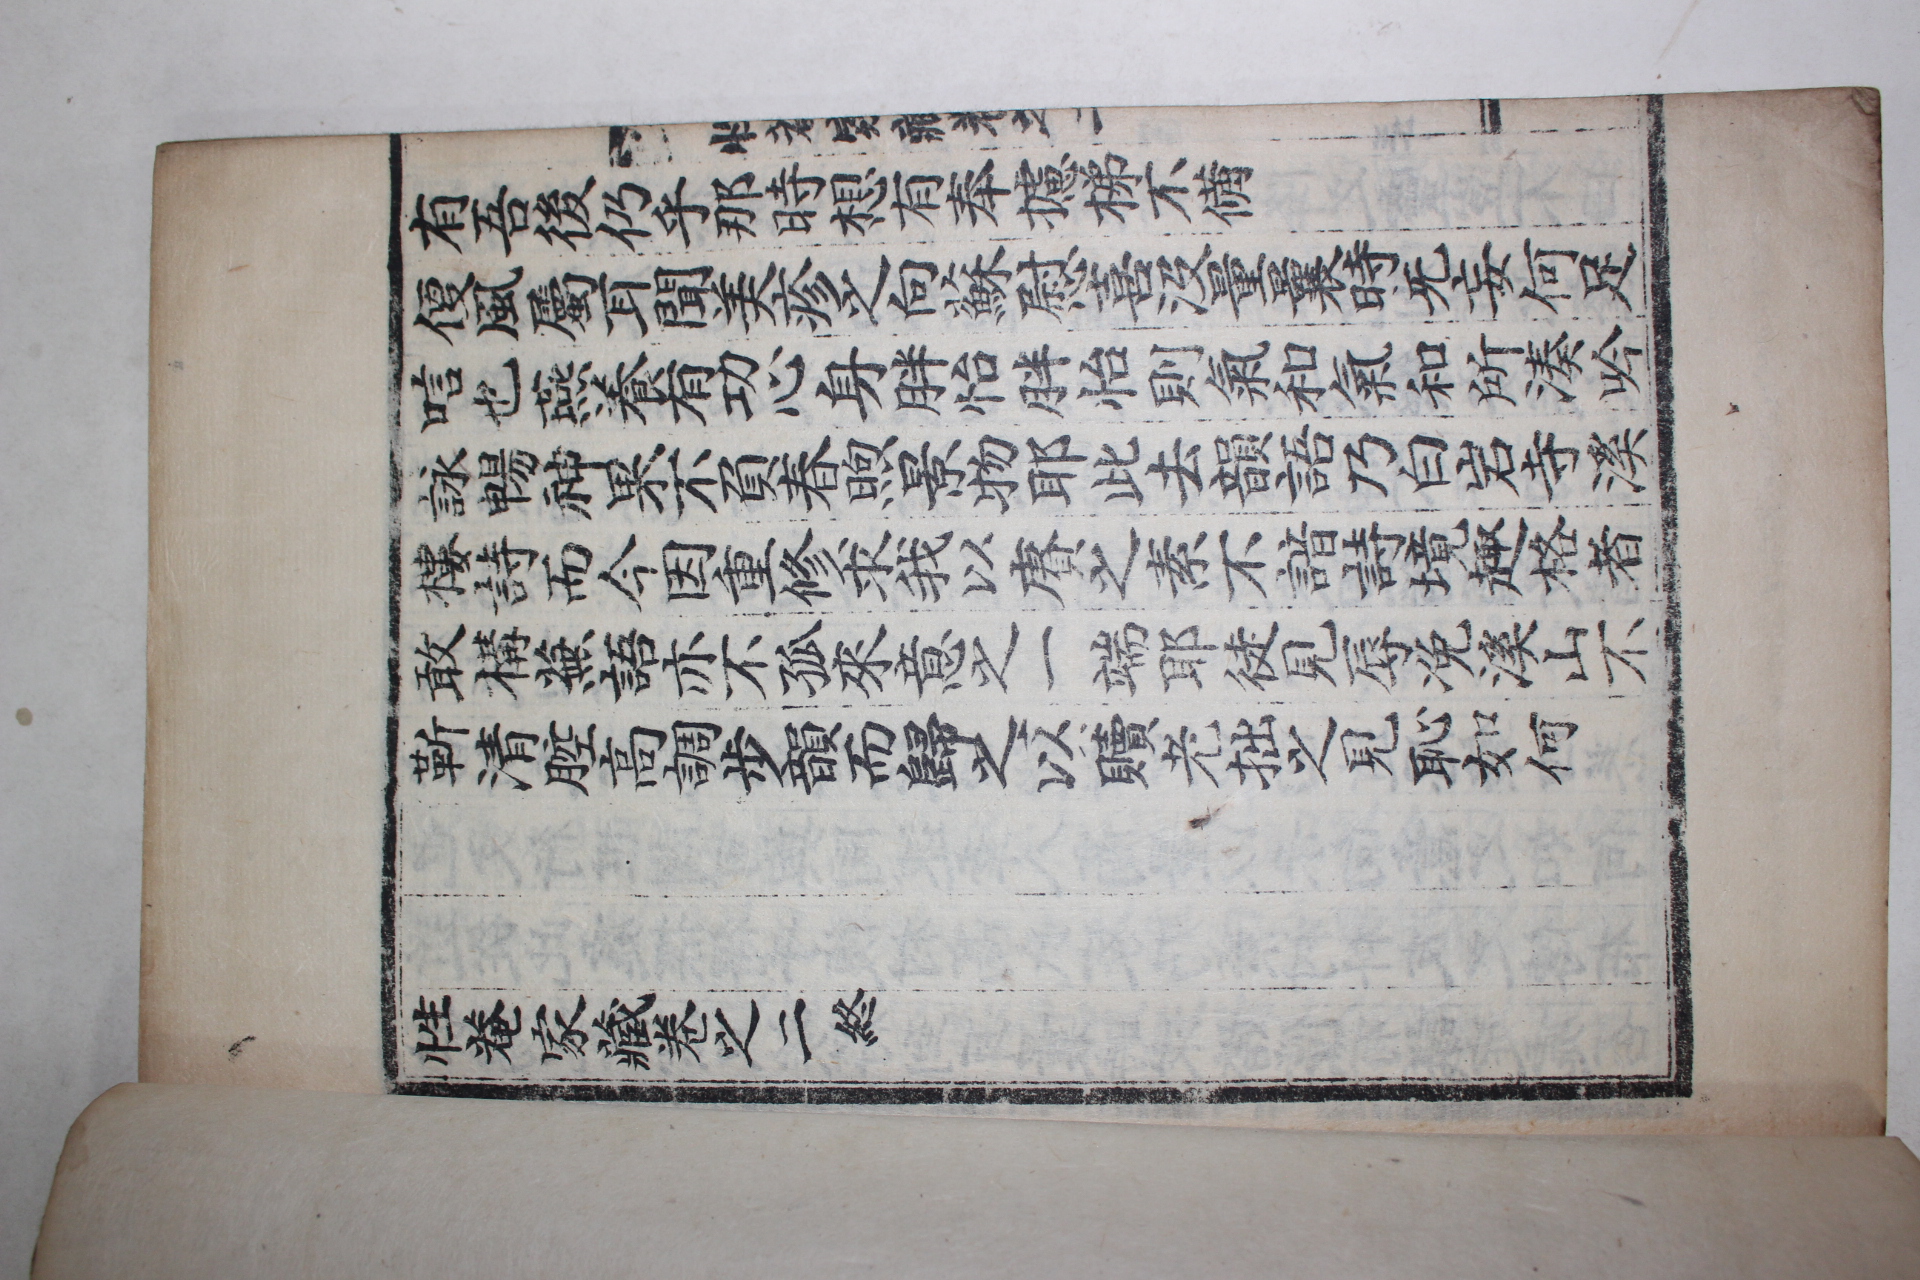 性菴家藏卷之二
有吾後仍乎那時想有奉攄梯不備
便風屬耳聞美疹之向蘇慰喜沒量曩時旡妄何足
唁也燕養有功心身胖怡胖怡則氣和氣和所湊吟
詠暢神果不負春煦景物耶此去韻語乃白岩寺溪
樓詩而今因重修求我以賡之素不諳詩境趣格者
敢構蕪語亦不孤來意之一端耶徒見辱浼溪山不
蘄清腔高調步韻而歸之以贖老拙之見恥如何
性菴家藏卷之二 終